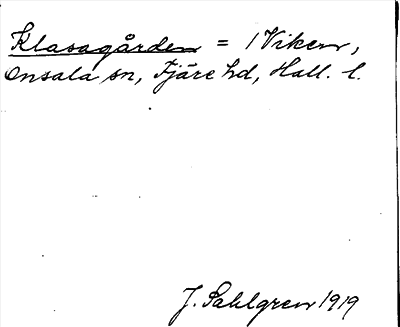 Klasagården = 1 Viken,
Onsala sn, Fjäre hd, Hall. l.
J. Sahlgren 1919